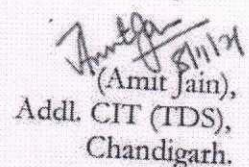 8/11/21
(Amit Jain),
Addl. CIT (TDS),
Chandigarh.